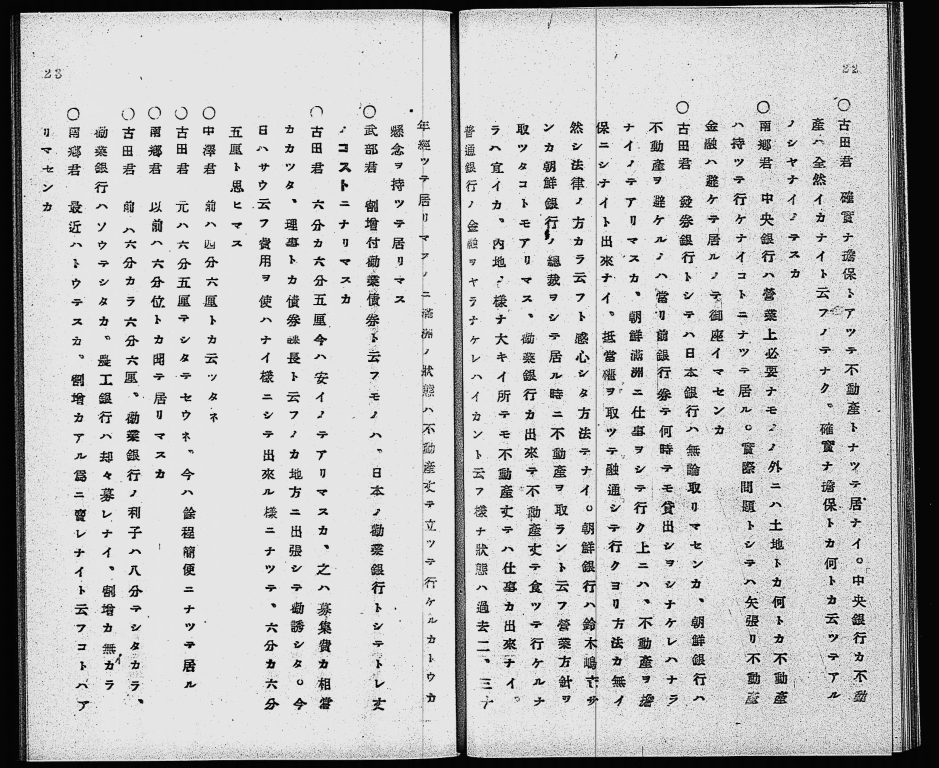 22
○古田君　確實ナ擔保トアツテ不動產トナツテ居ナイ。中央銀行カ不動
產ハ全然イカナイト云フノテナク、確實ナ擔保トカ何トカ云ツテアル
ノシヤナイノテスカ
○南鄕君　中央銀行ハ營業上必要ナモノノ外ニハ土地トカ何トカ不動產
ハ持ツテ行ケナイコトニナツテ居ル。實際問題トシテハ矢張リ不動產
金融ハ避ケテ居ルノテ御座イマセンカ
○古田君　發券銀行トシテハ日本銀行ハ無論取リマセンカ、朝鮮銀行ハ
不動產ヲ避ケルノハ當リ前銀行券テ何時テモ貸出シヲシナケレハナラ
ナイノテアリマスカ、朝鮮滿洲ニ仕事ヲシテ行ク上ニハ、不動產ヲ擔
保ニシナイト出來ナイ。抵當權ヲ取ツテ融通シテ行クヨリ方法カ無イ
然シ法律ノ方カラ云フト感心シタ方法テナイ。朝鮮銀行ハ鈴木嶋吉サ
ンカ朝鮮銀行ノ總裁ヲシテ居ル時ニ不動產ヲ取ラント云フ營業方針ヲ
取ツタコトモアリマス、勸業銀行カ出來テ不動產丈テ食ツテ行ケルナ
ラハ宜イカ、內地ノ樣ナ大キイ所テモ不動產丈テハ仕事カ出來ナイ。
普通銀行ノ金融ヲヤラナケレハイカント云フ樣ナ狀態ハ過去二、三十
年經ツテ居リマスノニ滿洲ノ狀態ハ不動產丈テ立ツテ行ケルカトウカ
懸念ヲ持ツテ居リマス
○武部君　割增付勸業債券ト云フモノハ、日本ノ勸業銀行トシテトレ丈
ノコストニナリマスカ
○古田君　六分カ六分五厘今ハ安イノテアリマスカ、之ハ募集費カ相當
カカツタ、理事トカ債券課長ト云フノカ地方ニ出張シテ勸誘シタ。今
日ハサウ云フ費用ヲ使ハナイ樣ニシテ出來ル樣ニナツテ、六分カ六分
五厘ト思ヒマス
○中澤君　前ハ四分六厘トカ云ツタネ
○古田君　元ハ六分五厘テシタテセウネ、今ハ餘程簡便ニナツテ居ル
○南鄕君　以前ハ六分位トカ聞テ居リマスカ
○古田君　前ハ六分カラ六分六厘、勸業銀行ノ利子ハ八分テシタカラ、
勸業銀行ハソウテシタカ、農工銀行ハ却々募レナイ、割增カ無カラ
○南鄕君　最近ハトウテスカ、割增カアル爲ニ賣レナイト云フコトハア
リマセンカ
23